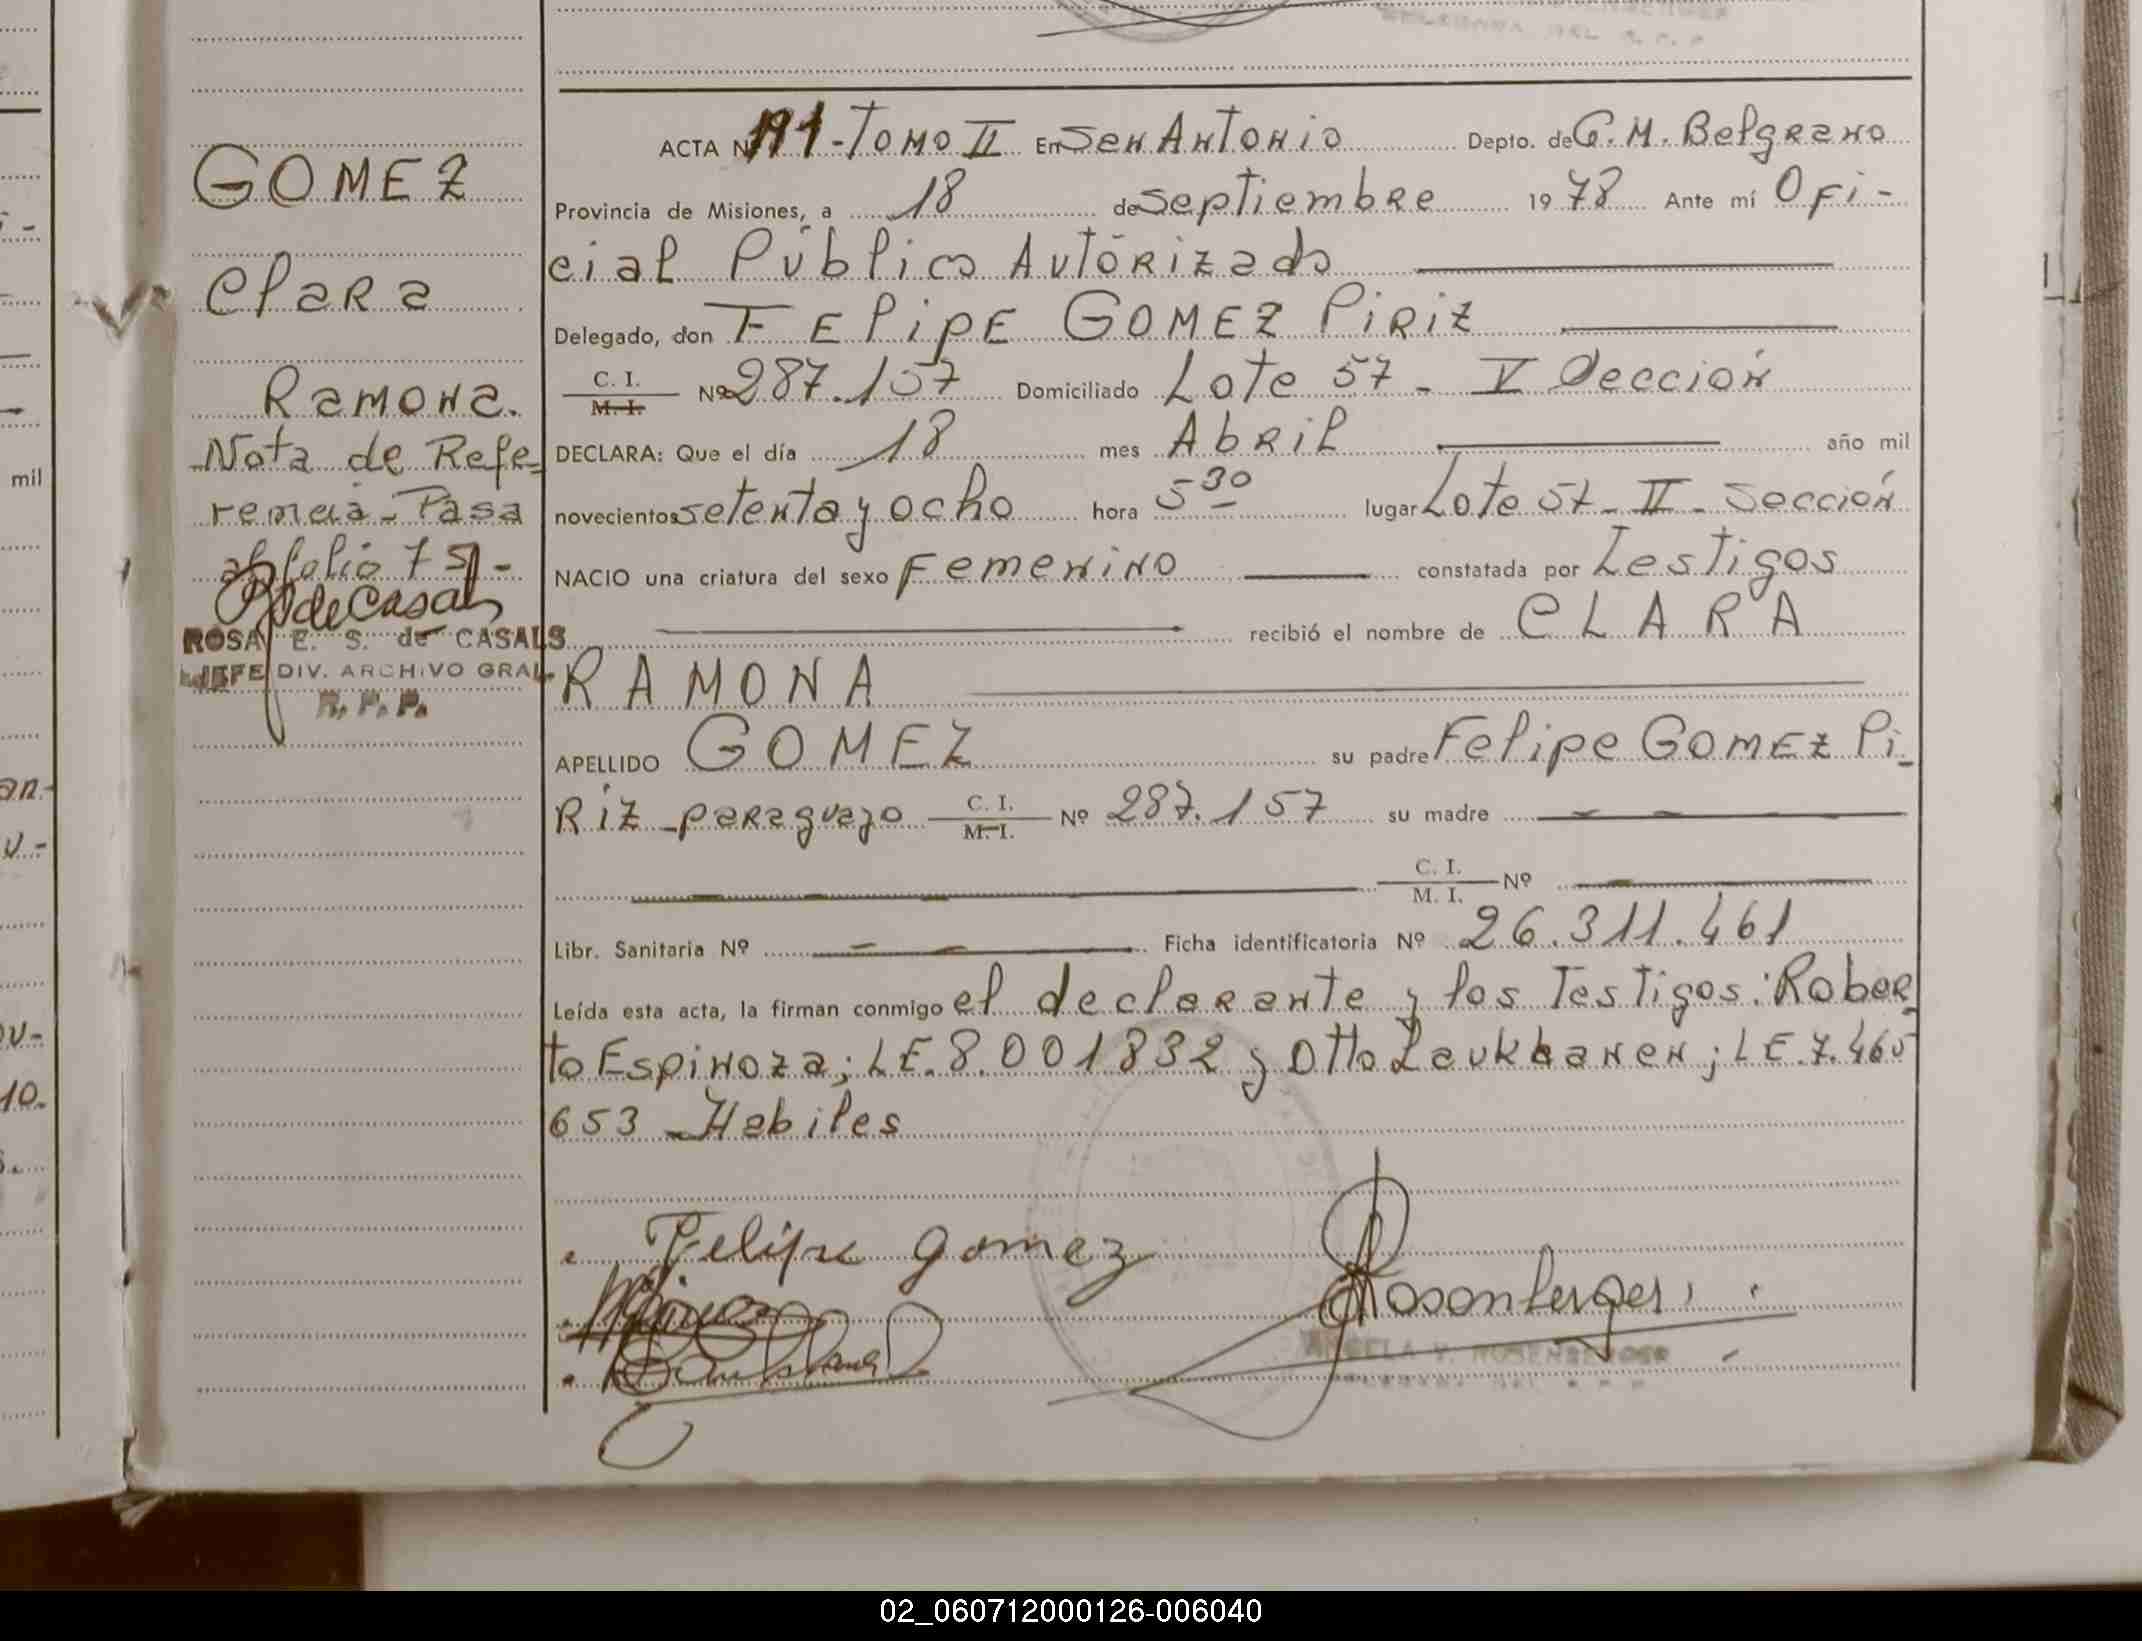 GOMEZ
Clara
Ramona.
Nota de Refe-
rencia - Pasa
al folio 75 -
ROSA E. S. de CASALS
JEFE DIV. ARCHIVO GRAL.
R. P. P.
ACTA Nº 191 - Tomo II En San Antonio Depto. de G. M. Belgrano
Provincia de Misiones, a 18 de septiembre 1978 Ante mí Ofi-
cial Público Autorizado
Delegado, don FELIPE GOMEZ PIRIZ
C. I. M. I. Nº 287.157 Domiciliado Lote 57 - V Sección
DECLARA: Que el día 18 mes Abril año mil
novecientos setenta y ocho hora 5 30 lugar Lote 57 - II - Sección
NACIO una criatura del sexo Femenino constatada por Testigos
recibió el nombre de CLARA
RAMONA
APELLIDO GOMEZ su padre Felipe GOMEZ Pi-
Riz - paraguayo C. I. M. I. Nº 287.157 su madre
C. I. M. I. Nº
Libr. Sanitaria Nº Ficha identificatoria Nº 26.311.461
Leída esta acta, la firman conmigo el declarante y los Testigos: Rober-
to Espinoza; LE. 8.001832 y Otto Laukkanen; LE. 7.465
653 - Habiles
Felipe Gomez
Rosenberger
ANGELA V. ROSENBERGER
mil
10.
02_060712000126-006040